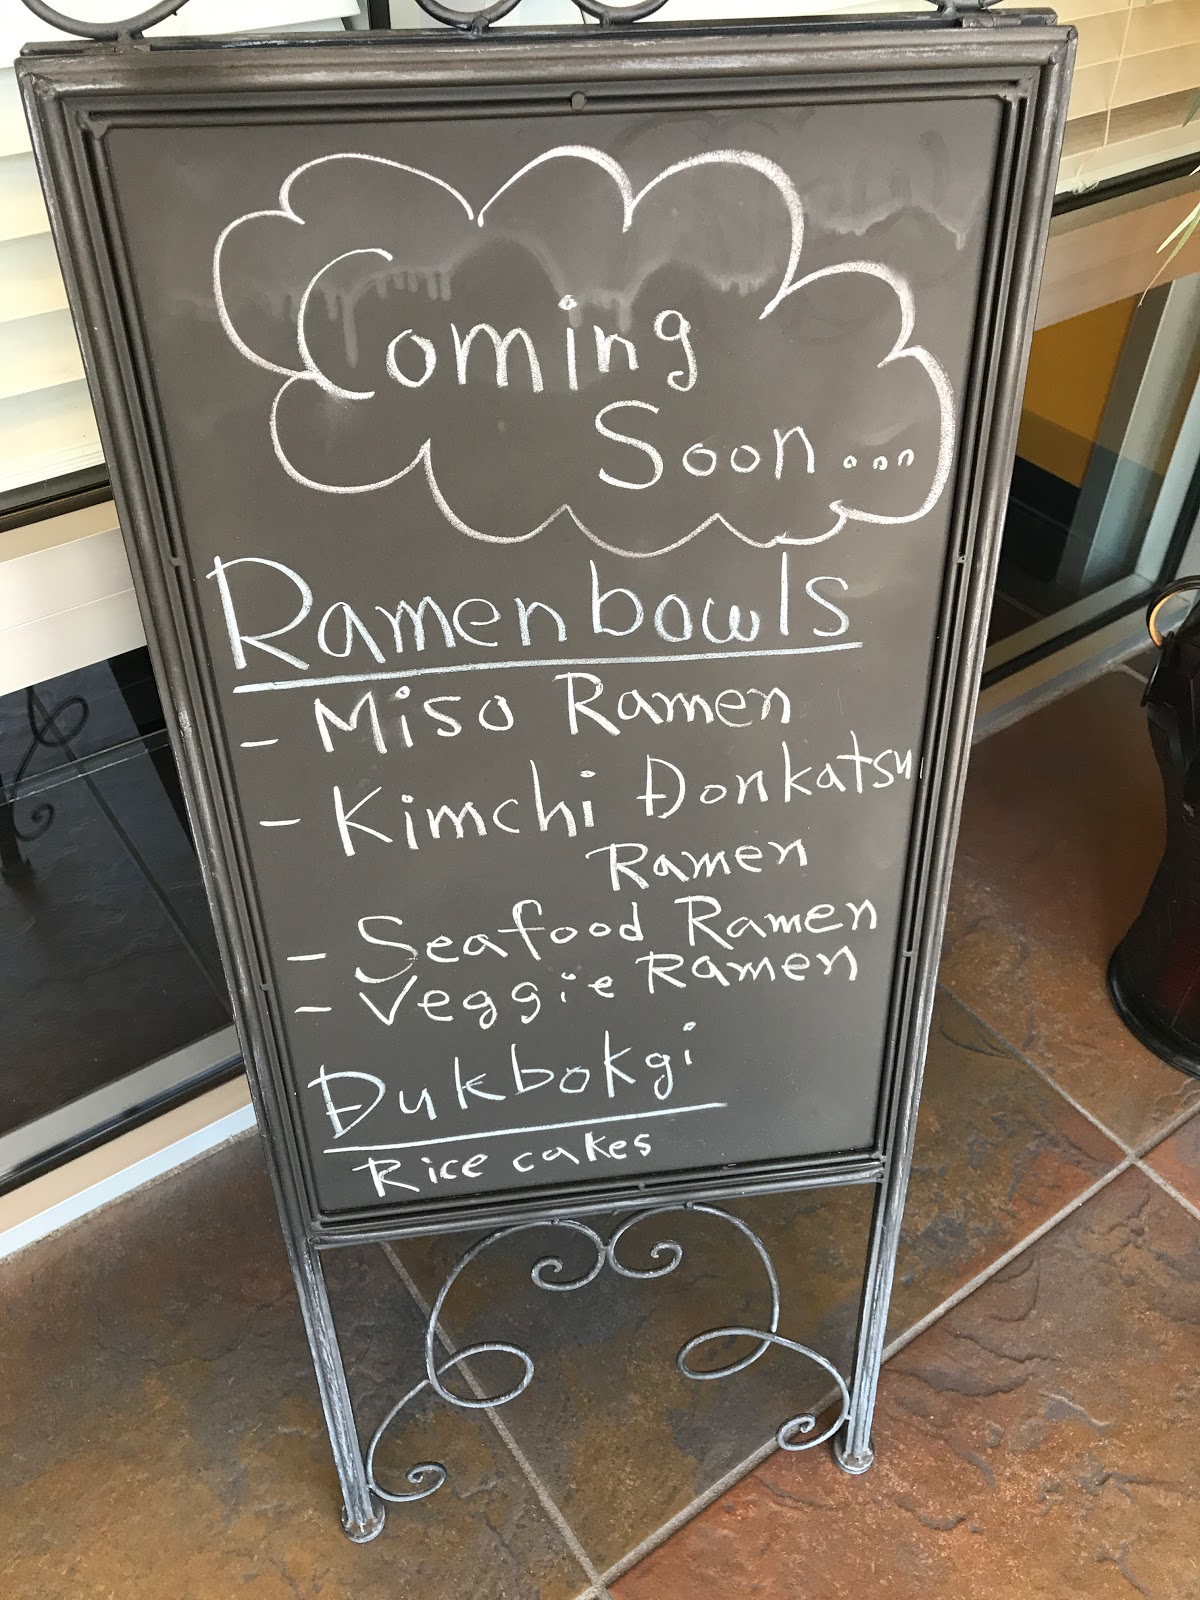 Coming
Soon...
Ramen bowls
- Miso Ramen
- Kimchi Donkatsu
Ramen
- Seafood Ramen
- Veggie Ramen
Dukbokgi
Rice cakes